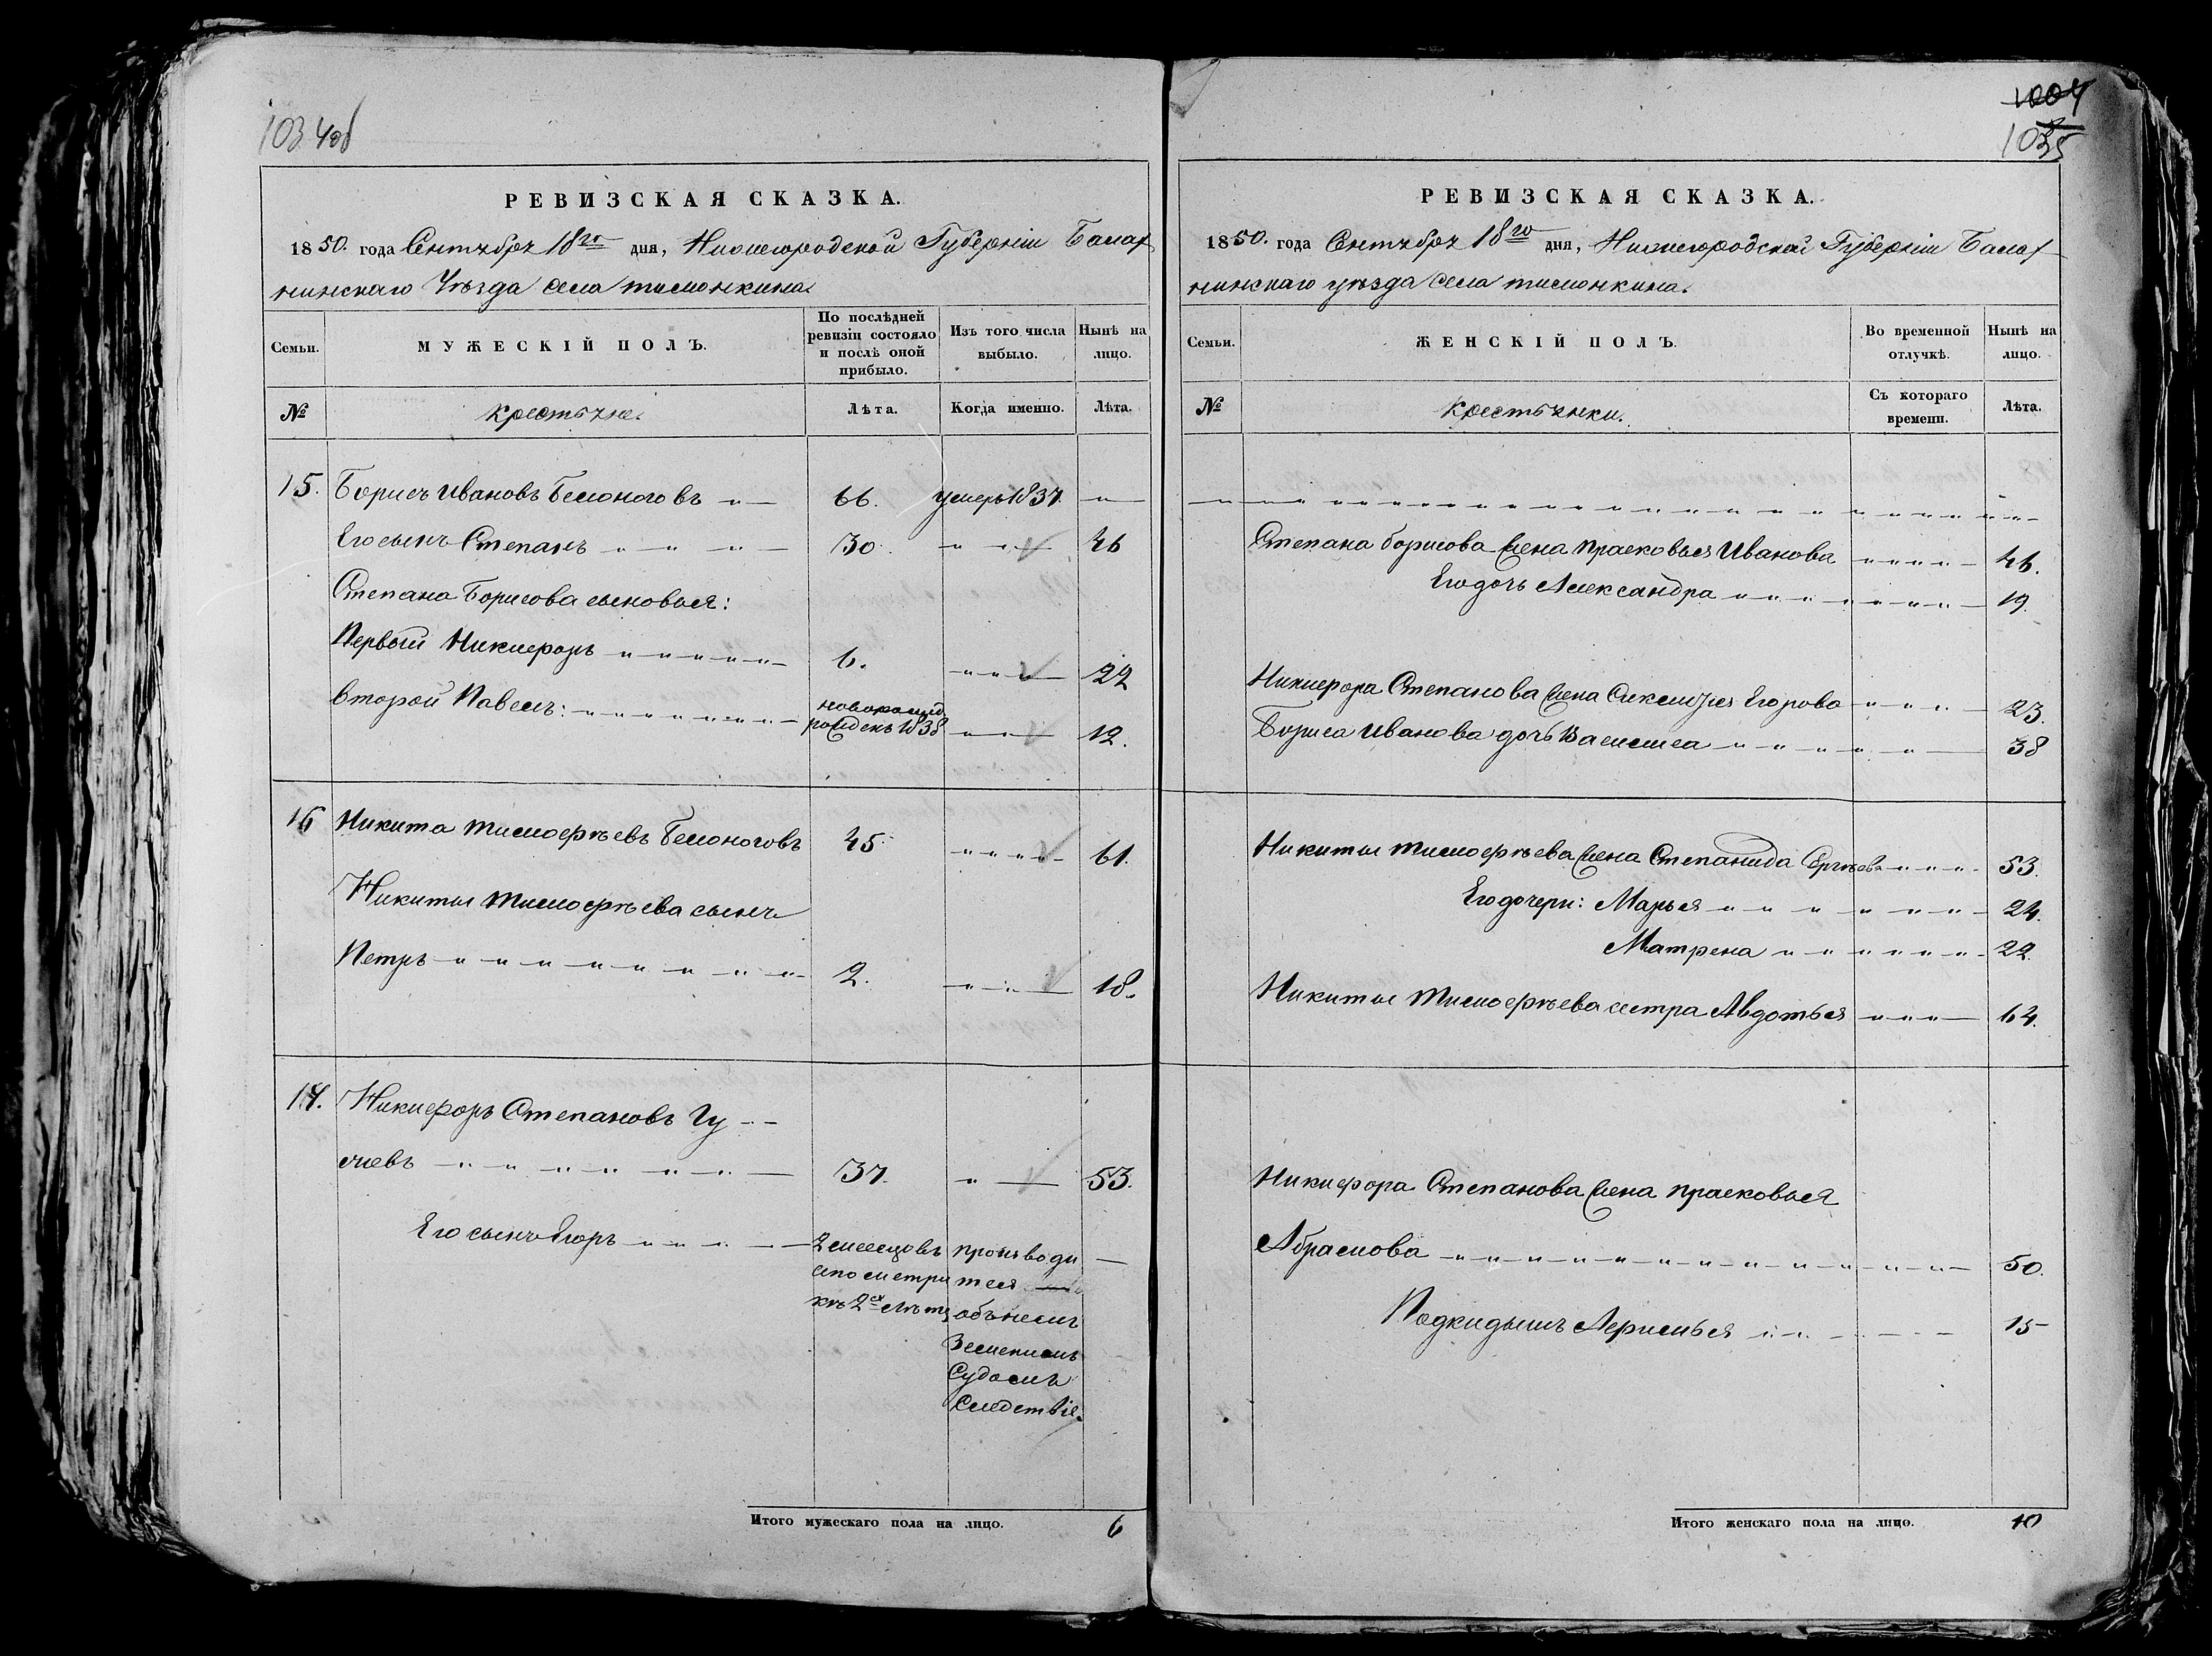 1034об
РЕВИЗСКАЯ СКАЗКА.
1850. года Сентября 18го дня, Нижегородской Губерніи Балах
нинскаго Уѣзда села тимонкина.
Семьи.
МУЖЕСКІЙ ПОЛЪ.
По послѣдней ревизіи состояло и послѣ оной прибыло.
Изъ того числа выбыло.
Нынѣ на лицо.
№
крестьяне.
Лѣта.
Когда именно.
Лѣта.
15. Борисъ Ивановъ Белоноговъ 66. умеръ 1837
Его сынъ Степанъ 30. 46
Степана Борисова сыновья:
Первый Никифоръ 6. 22
второй Павелъ: рожденъ 1838 12.
16 Никита тимофѣевъ Белоноговъ 45 61.
Никиты тимофѣева сынъ
Петръ 2. 18.
17. Никифоръ Степановъ Гу
севъ 37. 53.
Его сынъ Егоръ 2 месецовъ производи
а по метри тся
кѣ 2хъ лѣтъ, объ немъ
Земскимъ
Судомъ
Следствіе.
Итого мужескаго пола на лицо. 6
1004
1035
РЕВИЗСКАЯ СКАЗКА.
1850. года Сентября 18го дня, Нижегородской Губерніи Балах
нинскаго уѣзда села тимонкина.
Семьи.
ЖЕНСКІЙ ПОЛЪ.
Во временной отлучкѣ.
Нынѣ на лицо.
№
крестьянки.
Съ котораго времени.
Лѣта.
Степана борисова жена прасковья Иванова 46.
Его дочь Александра 19.
Никифора Степанова жена Егорова 23.
Бориса Иванова дочь Василиса 38
Никиты тимофѣева жена Степанида Сергѣева 53.
Его дочери: Марья 24.
Матрена 22.
Никиты тимофѣева сестра Авдотья 64.
Никифора Степанова жена прасковья
Абрамова 50.
Подкидышъ 15
Итого женскаго пола на лицо. 10